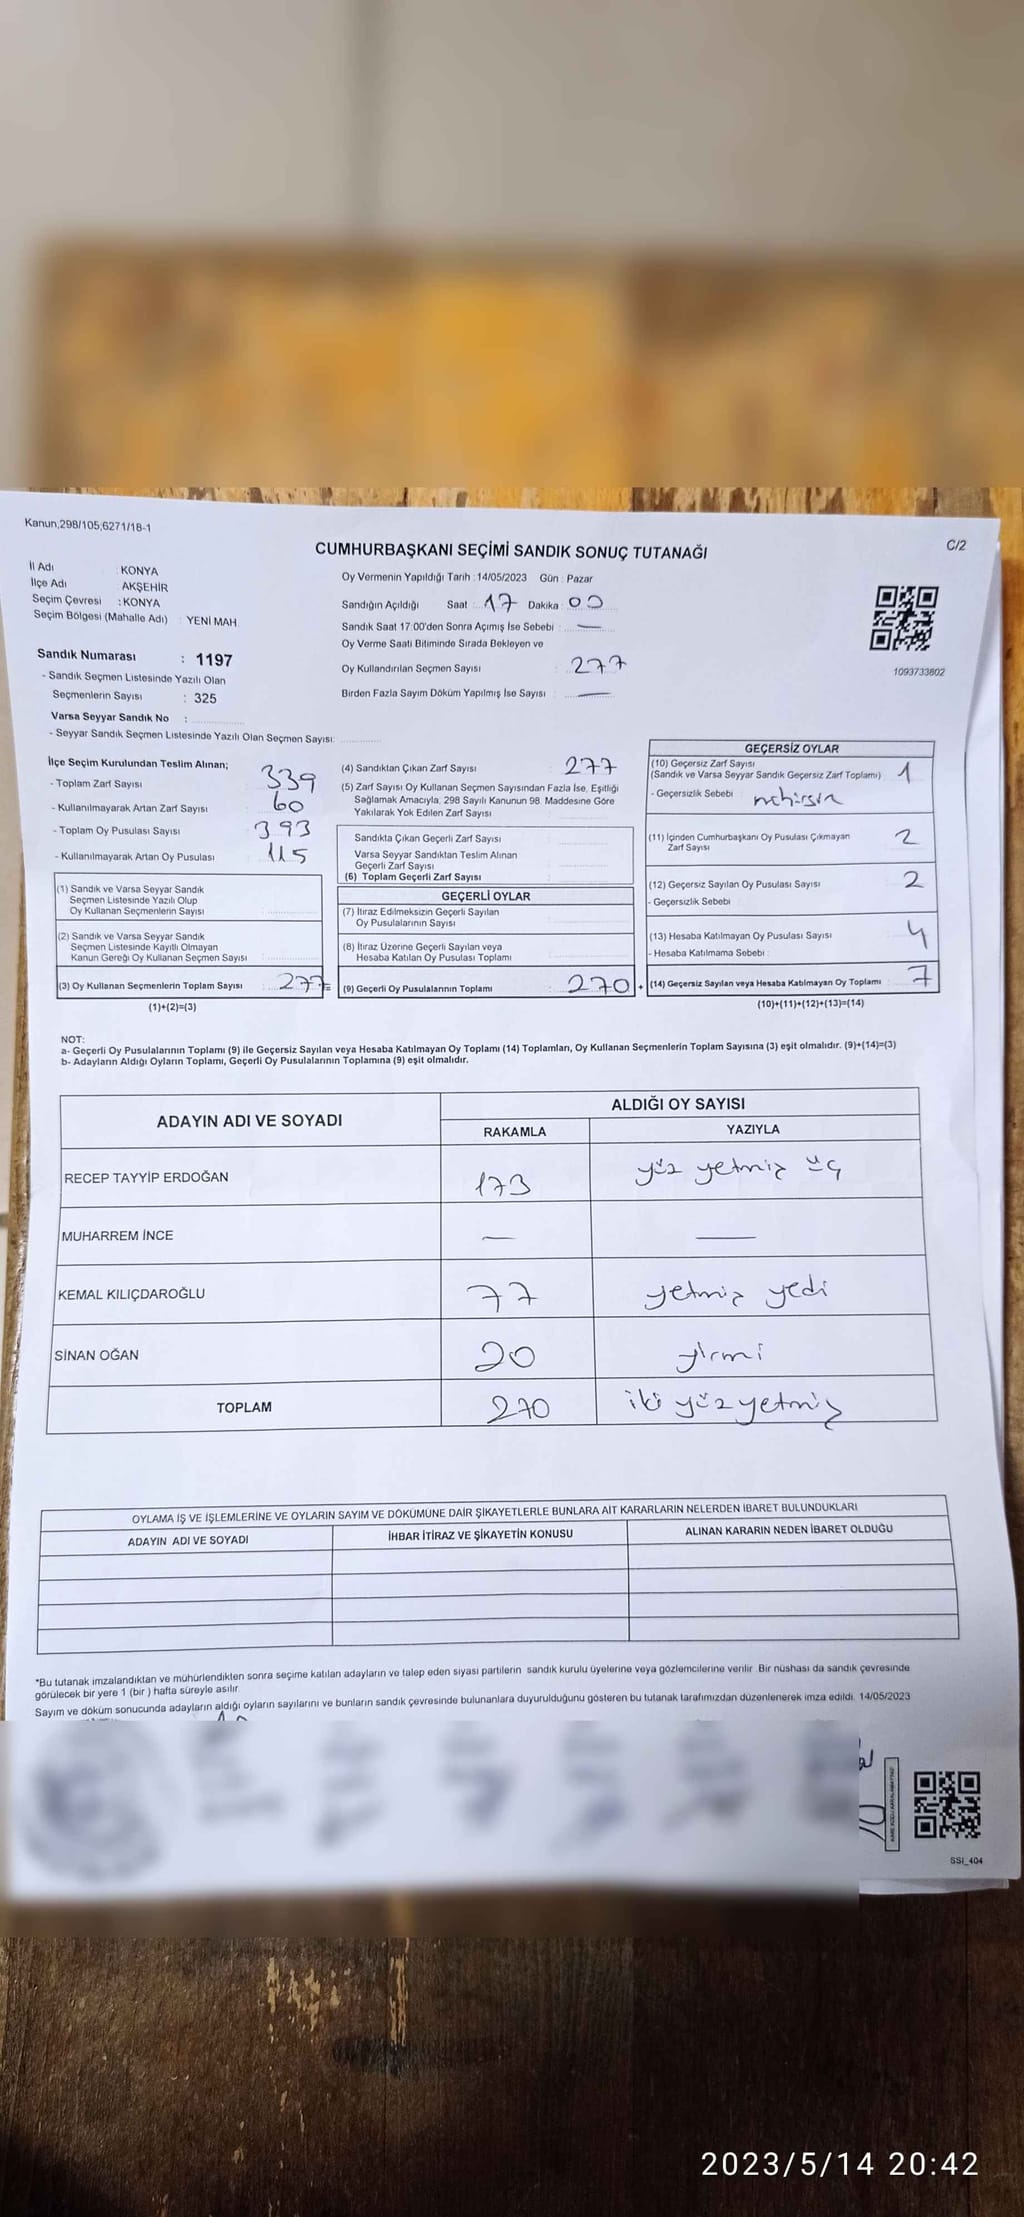 Kanun,298/105,6271/18-1
C/2
CUMHURBAŞKANI SEÇİMİ SANDIK SONUÇ TUTANAĞI
İl Adı : KONYA
İlçe Adı : AKŞEHİR
Seçim Çevresi : KONYA
Seçim Bölgesi (Mahalle Adı) : YENİ MAH.
Oy Vermenin Yapıldığı Tarih : 14/05/2023 Gün : Pazar
Sandığın Açıldığı Saat : 17 Dakika : 00
Sandık Saat 17:00'den Sonra Açımış İse Sebebi : —
Oy Verme Saati Bitiminde Sırada Bekleyen ve
Oy Kullandırılan Seçmen Sayısı : 277
Birden Fazla Sayım Döküm Yapılmış İse Sayısı : —
1093733602
Sandık Numarası : 1197
- Sandık Seçmen Listesinde Yazılı Olan
Seçmenlerin Sayısı : 325
Varsa Seyyar Sandık No :
- Seyyar Sandık Seçmen Listesinde Yazılı Olan Seçmen Sayısı:
İlçe Seçim Kurulundan Teslim Alınan;
- Toplam Zarf Sayısı 339
- Kullanılmayarak Artan Zarf Sayısı 60
- Toplam Oy Pusulası Sayısı 393
- Kullanılmayarak Artan Oy Pusulası 115
(1) Sandık ve Varsa Seyyar Sandık
Seçmen Listesinde Yazılı Olup
Oy Kullanan Seçmenlerin Sayısı :
(2) Sandık ve Varsa Seyyar Sandık
Seçmen Listesinde Kayıtlı Olmayan
Kanun Gereği Oy Kullanan Seçmen Sayısı
(3) Oy Kullanan Seçmenlerin Toplam Sayısı 277 =
(1)+(2)=(3)
(4) Sandıktan Çıkan Zarf Sayısı : 277
(5) Zarf Sayısı Oy Kullanan Seçmen Sayısından Fazla İse, Eşitliği
Sağlamak Amacıyla, 298 Sayılı Kanunun 98. Maddesine Göre
Yakılarak Yok Edilen Zarf Sayısı :
Sandıkta Çıkan Geçerli Zarf Sayısı
Varsa Seyyar Sandıktan Teslim Alınan
Geçerli Zarf Sayısı
(6) Toplam Geçerli Zarf Sayısı
GEÇERLİ OYLAR
(7) İtiraz Edilmeksizin Geçerli Sayılan
Oy Pusulalarının Sayısı
(8) İtiraz Üzerine Geçerli Sayılan veya
Hesaba Katılan Oy Pusulası Toplamı
(9) Geçerli Oy Pusulalarının Toplamı : 270 +
GEÇERSİZ OYLAR
(10) Geçersiz Zarf Sayısı
(Sandık ve Varsa Seyyar Sandık Geçersiz Zarf Toplamı) : 1
- Geçersizlik Sebebi
(11) İçinden Cumhurbaşkanı Oy Pusulası Çıkmayan
Zarf Sayısı 2
(12) Geçersiz Sayılan Oy Pusulası Sayısı 2
- Geçersizlik Sebebi
(13) Hesaba Katılmayan Oy Pusulası Sayısı 4
- Hesaba Katılmama Sebebi
(14) Geçersiz Sayılan veya Hesaba Katılmayan Oy Toplamı : 7
(10)+(11)+(12)+(13)=(14)
NOT:
a- Geçerli Oy Pusulalarının Toplamı (9) ile Geçersiz Sayılan veya Hesaba Katılmayan Oy Toplamı (14) Toplamları, Oy Kullanan Seçmenlerin Toplam Sayısına (3) eşit olmalıdır. (9)+(14)=(3)
b- Adayların Aldığı Oyların Toplamı, Geçerli Oy Pusulalarının Toplamına (9) eşit olmalıdır.
ADAYIN ADI VE SOYADI
ALDIĞI OY SAYISI
RAKAMLA YAZIYLA
RECEP TAYYİP ERDOĞAN 173 yüz yetmiş üç
MUHARREM İNCE — —
KEMAL KILIÇDAROĞLU 77 yetmiş yedi
SİNAN OĞAN 20 yirmi
TOPLAM 270 iki yüz yetmiş
OYLAMA İŞ VE İŞLEMLERİNE VE OYLARIN SAYIM VE DÖKÜMÜNE DAİR ŞİKAYETLERLE BUNLARA AİT KARARLARIN NELERDEN İBARET BULUNDUKLARI
ADAYIN ADI VE SOYADI İHBAR İTİRAZ VE ŞİKAYETİN KONUSU ALINAN KARARIN NEDEN İBARET OLDUĞU
*Bu tutanak imzalandıktan ve mühürlendikten sonra seçime katılan adayların ve talep eden siyasi partilerin sandık kurulu üyelerine veya gözlemcilerine verilir. Bir nüshası da sandık çevresinde
görülecek bir yere 1 (bir ) hafta süreyle asılır.
Sayım ve döküm sonucunda adayların aldığı oyların sayılarını ve bunların sandık çevresinde bulunanlara duyurulduğunu gösteren bu tutanak tarafımızdan düzenlenerek imza edildi. 14/05/2023
SSI_404
2023/5/14 20:42